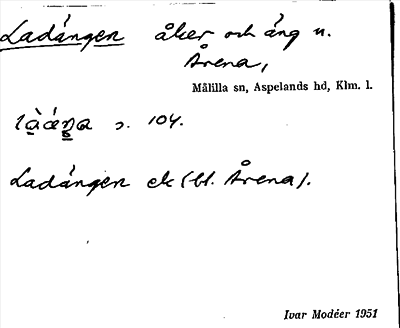 Ladängen åker och äng u.
Årena,
Målilla sn, Aspelands hd, Klm. l.
s. 104.
Ladängen ek (bl. Årena).
Ivar Modéer 1951